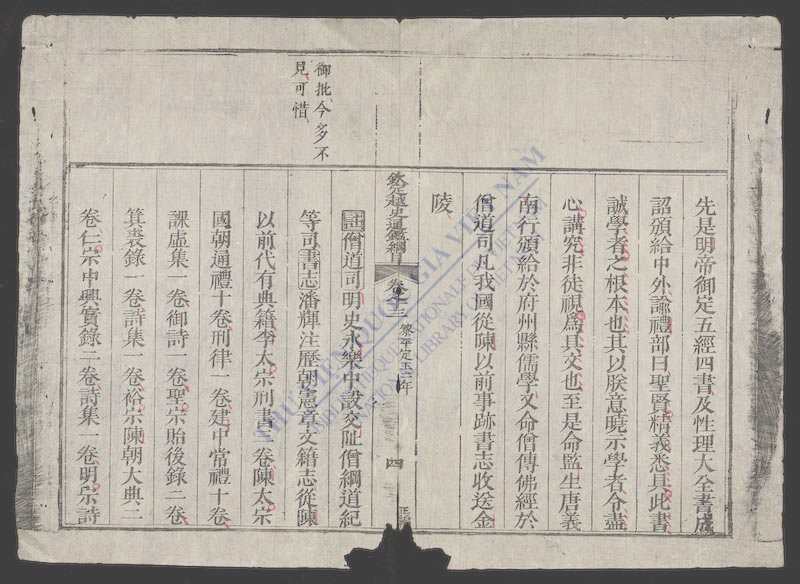 先是明帝御定五經四書及性理大全書成
詔頒給中外諭禮部曰聖賢精義悉具此書
誠學者之根本也其以朕意曉示學者令盡
心講究非徒視爲具文也至是命監生唐義
南行頒給於府州縣儒學又命僧傳佛經於
僧道司凡我國從陳以前事跡書志收送金
陵
欽定越史通鑑綱目
卷十三
黎平定王二年
四
正編
御批今多不
見可惜
註僧道司明史永樂中設交阯僧綱道紀
等司書志潘輝注歷朝憲章文籍志從陳
以前代有典籍李太宗刑書三卷陳太宗
國朝通禮十卷刑律一卷建中常禮十卷
課虛集一卷御詩一卷聖宗貽後錄二卷
箕裘錄一卷詩集一卷裕宗陳朝大典二
卷仁宗中興實錄二卷詩集一卷明宗詩
THƯ VIỆN QUỐC GIA VIỆT NAM
BIBLIOTHÈQUE NATIONALE DU VIETNAM
NATIONAL LIBRARY OF VIETNAM